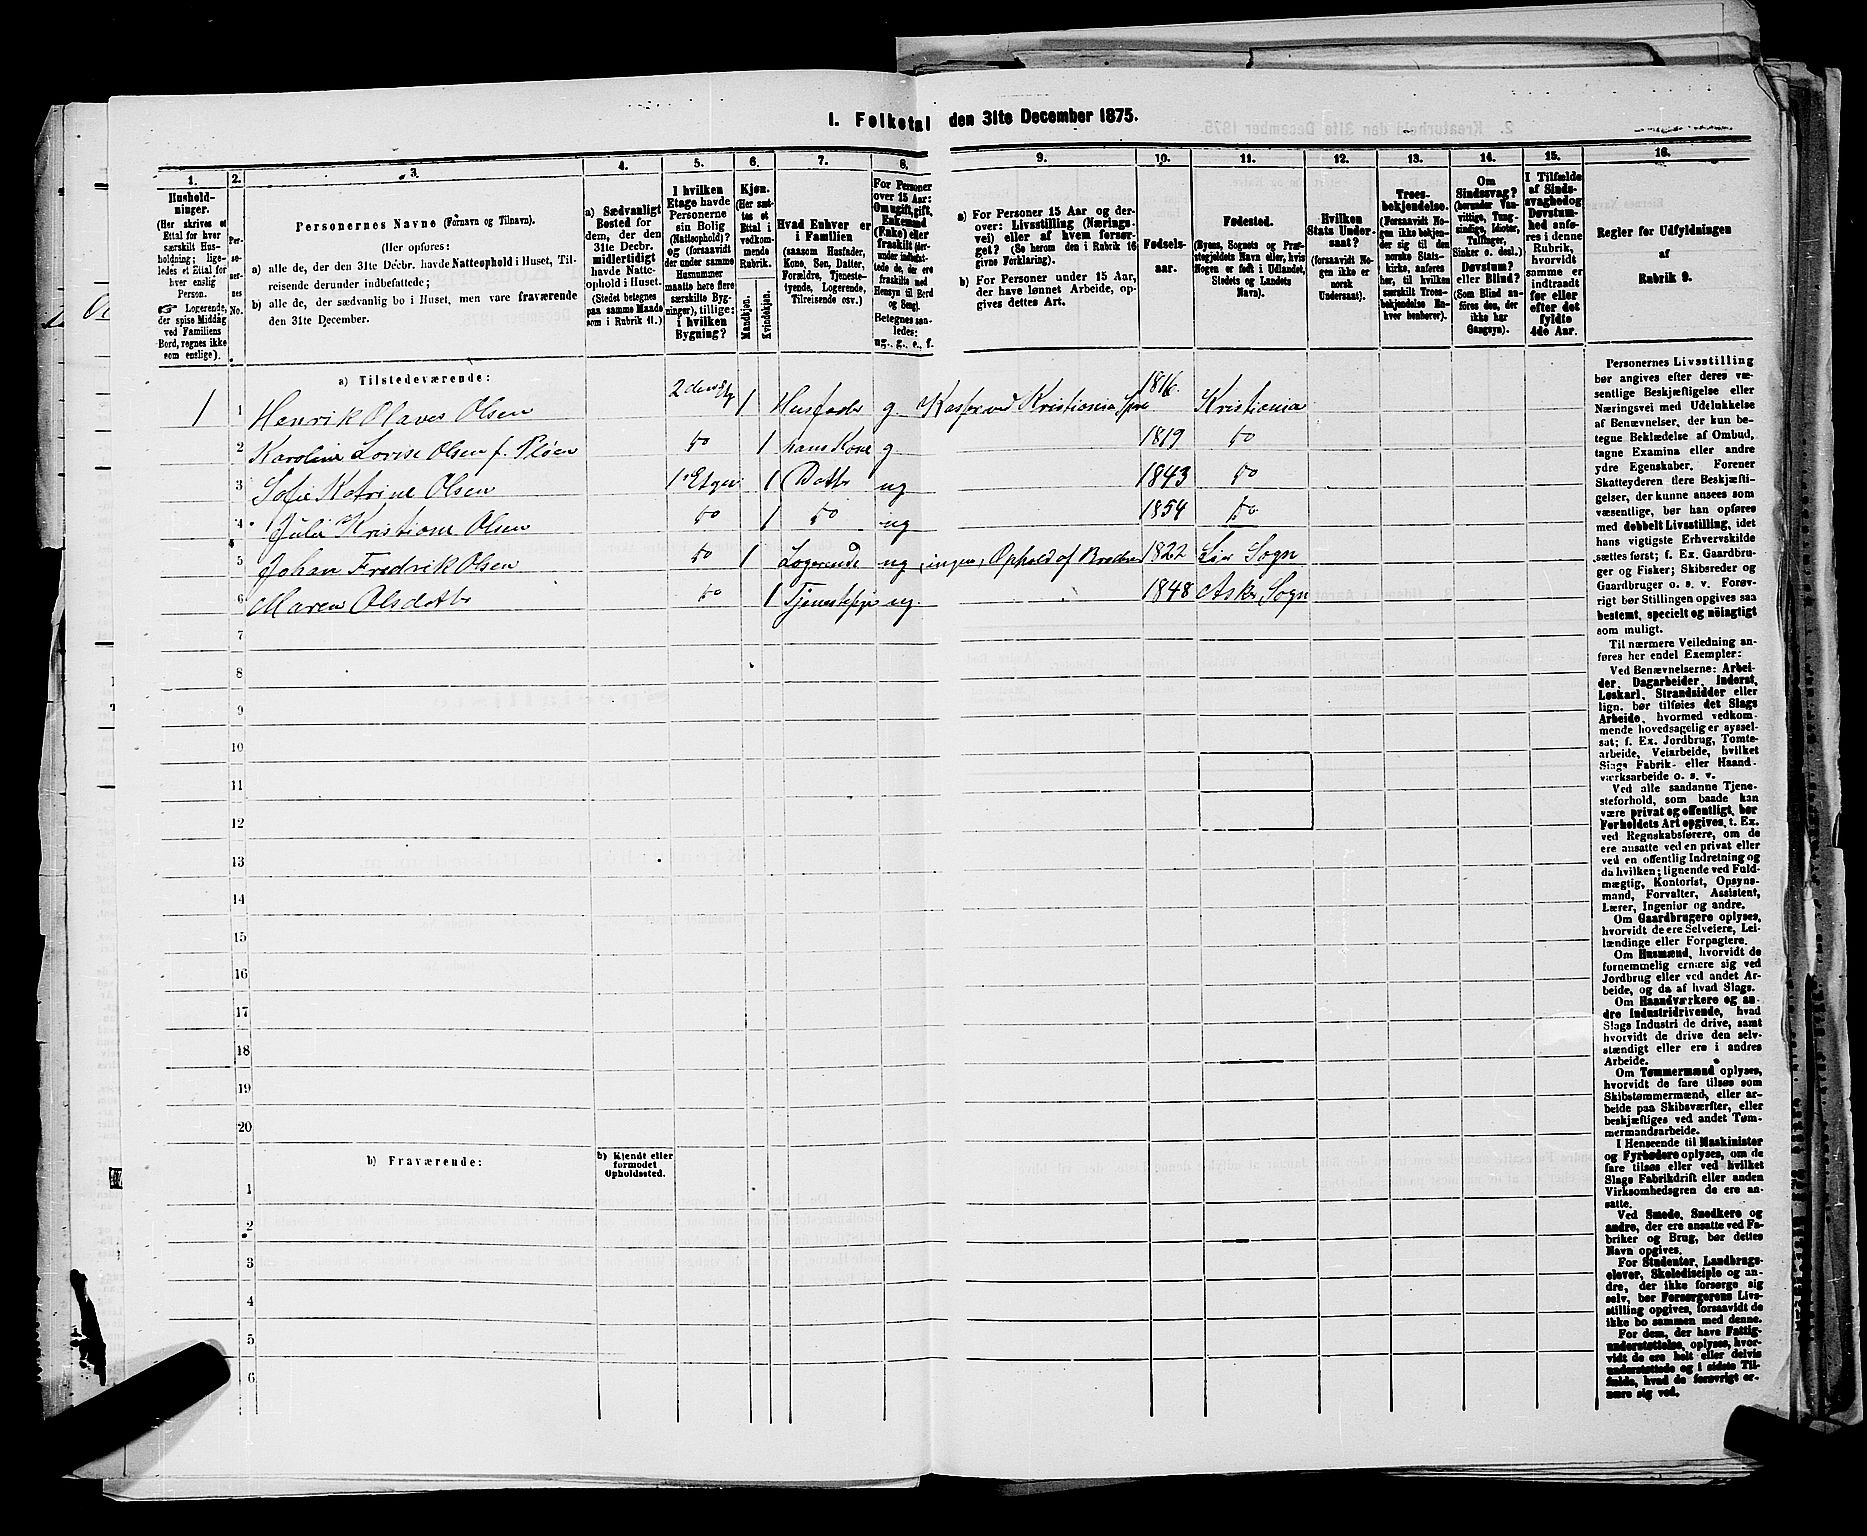 1. Folketal den 31te December 1875.
1. 2. 3. 4. 5. 6. 7. 8. 9. 10. 11. 12. 13. 14. 15. 16.
Hushold-
ninger.
(Her skrives et
Ettal for hver
særskilt Hus-
holdning; lige-
ledes et Ettal for
hver enslig
Person.
☞ Logerende,
der spise Middag
ved Familiens
Bord, regnes ikke
som enslige).
Per-
so-
ner-
nes
No.
Personernes Navne (Fornavn og Tilnavn).
(Her opføres:
a) alle de, der den 31te Decbr. havde Natteophold i Huset, Til-
reisende derunder indbefattede;
b) alle de, der sædvanlig bo i Huset, men vare fraværende
den 31te December.
a) Sædvanligt
Bosted for
dem, der den
31te Decbr.
midlertidigt
havde Natte-
ophold i Huset.
(Stedet betegnes
paa samme Maade
som i Rubrik 11.)
I hvilken
Etage havde
Personerne
sin Bolig
(Natteophold)?
og (forsaavidt
der under samme
Husnummer
maatte høre flere
særskilte Byg-
ninger), tillige:
i hvilken
Bygning?
Kjøn.
(Her sæt-
tes et
Ettal i
vedkom-
mende
Rubrik.
Mandkjøn.
Kvindekjøn.
Hvad Enhver er
i Familien
(saasom Husfader,
Kone, Søn, Datter,
Forældre, Tjeneste-
tyende, Logerende,
Tilreisende osv.)
For Personer
over 15 Aar:
Om ugift, gift,
Enkemand
(Enke) eller
fraskilt (der-
under indbefat-
tede de, der ere
fraskilte med
Hensyn til Bord
og Seng).
Betegnes saa-
ledes:
ug., g., e., f.
a) For Personer 15 Aar og der-
over: Livsstilling (Nærings-
vei) eller af hvem forsør-
get? (Se herom den i Rubrik 16
givne Forklaring).
b) For Personer under 15 Aar,
der have lønnet Arbeide, op-
gives dettes Art.
Fødsels-
aar.
Fødested.
(Byens, Sognets og Præ-
stegjeldets Navn eller, hvis
Nogen er født i Udlandet,
Stedets og Landets
Navn).
Hvilken
Stats Under-
saat?
(forsaavidt No-
gen ikke er
norsk
Undersaat).
Troes-
bekjendelse.
(Forsaavidt No-
gen ikke bekjen-
der sig til den
norske Stats-
kirke, anføres
her, til hvilken
særskilt Troes-
bekjendelse En-
hver henhører).
Om
Sindssvag?
(herunder Van-
vittige, Tung-
sindige, Idioter,
Tullinger,
Sinker o. desl.)
Døvstum?
eller Blind?
(Som Blind an-
føres den, der
ikke har
Gangsyn).
I Tilfælde
af Sinds-
svaghed og
Døvstum-
hed anfø-
res i denne
Rubrik,
hvorvidt
samme er
indtraadt
før eller
efter det
fyldte
4de Aar.
Regler for Udfyldningen
af
Rubrik 9.
a) Tilstedeværende:
1 1 Henrik Olaves Olsen 2den Etg 1 Husfader g. Kasserved Kristiania 1816. Kristiania
2 Karoline Lovise Olsen f. Pløen do 1 hans Kone g 1819 do
3 Sofie Katrine Olsen 1 Etgen 1 Datter ug 1843 do
4 Julie Kristiane Olsen do 1 do ug 1854 do
5 Johan Fredrik Olsen do 1 Logerende ug ingen, Ophold af Broderen 1822 Lier Sogn
6 Maren Olsdatter do 1 Tjenestepige ug. 1848 Asker Sogn
7
8
9
10
11
12
13
14
15
16
17
18
19
20
b) Fraværende:
b) Kjendt eller
formodet
Opholdssted.
1
2
3
4
5
6
Personernes Livsstilling
bør angives efter deres væ-
sentlige Beskjæftigelse eller
Næringsvei med Udelukkelse
af Benævnelser, der kun be-
tegne Beklædelse af Ombud,
tagne Examina eller andre
ydre Egenskaber. Forener
Skatteyderen flere Beskjæfti-
gelser, der kunne ansees som
væsentlige, bør han opføres
med dobbelt Livsstilling, idet
hans vigtigste Erhvervskilde
sættes først; f. Ex. Gaardbru-
ger og Fisker; Skibsreder og
Gaardbruger o. s. v. Forøv-
rigt bør Stillingen opgives saa
bestemt, specielt og nöiagtigt
som muligt.
Til nærmere Veiledning an-
føres her endel Exempler:
Ved Benævnelserne: Arbei-
der, Dagarbeider, Inderst,
Løskarl, Strandsidder eller
lign. bør tilføies det Slags
Arbeide, hvormed vedkom-
mende hovedsagelig er syssel-
sat; f. Ex. Jordbrug, Tomte-
arbeide, Veiarbeide, hvilket
Slags Fabrik- eller Haand-
værksarbeide o. s. v.
Ved alle saadanne Tjene-
steforhold, som baade kan
være privat og offentligt, bør
Forholdets Art opgives, t. Ex.
ved Regnskabsførere, om de
ere ansatte ved en privat eller
ved en offentlig Indretning og
da hvilken; lignende ved Fuld-
mægtig, Kontorist, Opsyns-
mand, Forvalter, Assistent,
Lærer, Ingeniør og andre.
Om Gaardbrugere oplyses,
hvorvidt de ere Selveiere, Lei-
lændinge eller Forpagtere.
Om Husmænd, hvorvidt de
fornemmelig ernære sig ved
Jordbrug eller ved andet Ar-
beide, og da af hvad Slags.
Om Haandværkere og an-
dre Industridrivende, hvad
Slags Industri de drive, samt
hvorvidt de drive den selv-
stændigt eller ere i andres
Arbeide.
Om Tømmermænd oplyses,
hvorvidt de fare tilsøs som
Skibstømmermænd, eller ar-
beide paa Skibsværfter, eller
beskjæftiges ved andet Tøm-
mermandsarbeide.
I Henseende til Maskinister
og Fyrbødere oplyses, om de
fare tilsøs eller ved hvilket
Slags Fabrikdrift eller anden
Virksomhedsgren de ere an-
satte.
Ved Smede, Snedkere og
andre, der ere ansatte ved Fa-
briker og Brug, bør dettes
Navn opgives.
For Studenter, Landbrugs-
elever, Skoledisciple og an-
dre, der ikke forsørge sig
selv, bør Forsørgerens Livs-
stilling opgives, forsaavidt de
ikke bo sammen med denne.
For dem, der have Fattig-
understøttelse, oplyses, hvor-
vidt de ere helt eller delvis
understøttede og i sidste Til-
fælde, hvad de forøvrigt er-
nære sig ved.